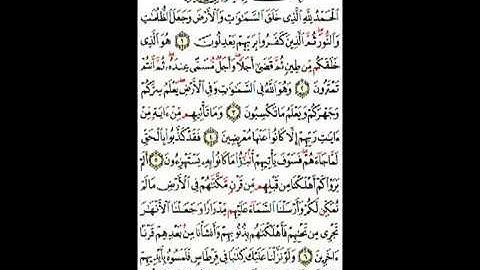 الْحَمْدُ لِلَّهِ الَّذِى خَلَقَ السَّمَٰوَٰتِ وَالْأَرْضَ وَجَعَلَ الظُّلُمَٰتِ
وَالنُّورَ ثُمَّ الَّذِينَ كَفَرُوا بِرَبِّهِمْ يَعْدِلُونَ ١ هُوَ الَّذِى
خَلَقَكُم مِّن طِينٍ ثُمَّ قَضَىٰ أَجَلًا وَأَجَلٌ مُّسَمًّى عِندَهُ ثُمَّ أَنتُمْ
تَمْتَرُونَ ٢ وَهُوَ اللَّهُ فِى السَّمَٰوَٰتِ وَفِى الْأَرْضِ يَعْلَمُ سِرَّكُمْ
وَجَهْرَكُمْ وَيَعْلَمُ مَا تَكْسِبُونَ ٣ وَمَا تَأْتِيهِم مِّنْ ءَايَةٍ مِّنْ
ءَايَٰتِ رَبِّهِمْ إِلَّا كَانُوا عَنْهَا مُعْرِضِينَ ٤ فَقَدْ كَذَّبُوا بِالْحَقِّ
لَمَّا جَاءَهُمْ فَسَوْفَ يَأْتِيهِمْ أَنۢبَٰٓؤُا مَا كَانُوا بِهِ يَسْتَهْزِءُونَ ٥ أَلَمْ
يَرَوْا كَمْ أَهْلَكْنَا مِن قَبْلِهِم مِّن قَرْنٍ مَّكَّنَّٰهُمْ فِى الْأَرْضِ مَا لَمْ
نُمَكِّن لَّكُمْ وَأَرْسَلْنَا السَّمَاءَ عَلَيْهِم مِّدْرَارًا وَجَعَلْنَا الْأَنْهَٰرَ
تَجْرِى مِن تَحْتِهِمْ فَأَهْلَكْنَٰهُم بِذُنُوبِهِمْ وَأَنشَأْنَا مِنۢ بَعْدِهِمْ قَرْنًا
ءَاخَرِينَ ٦ وَلَوْ نَزَّلْنَا عَلَيْكَ كِتَٰبًا فِى قِرْطَاسٍ فَلَمَسُوهُ بِأَيْدِيهِمْ